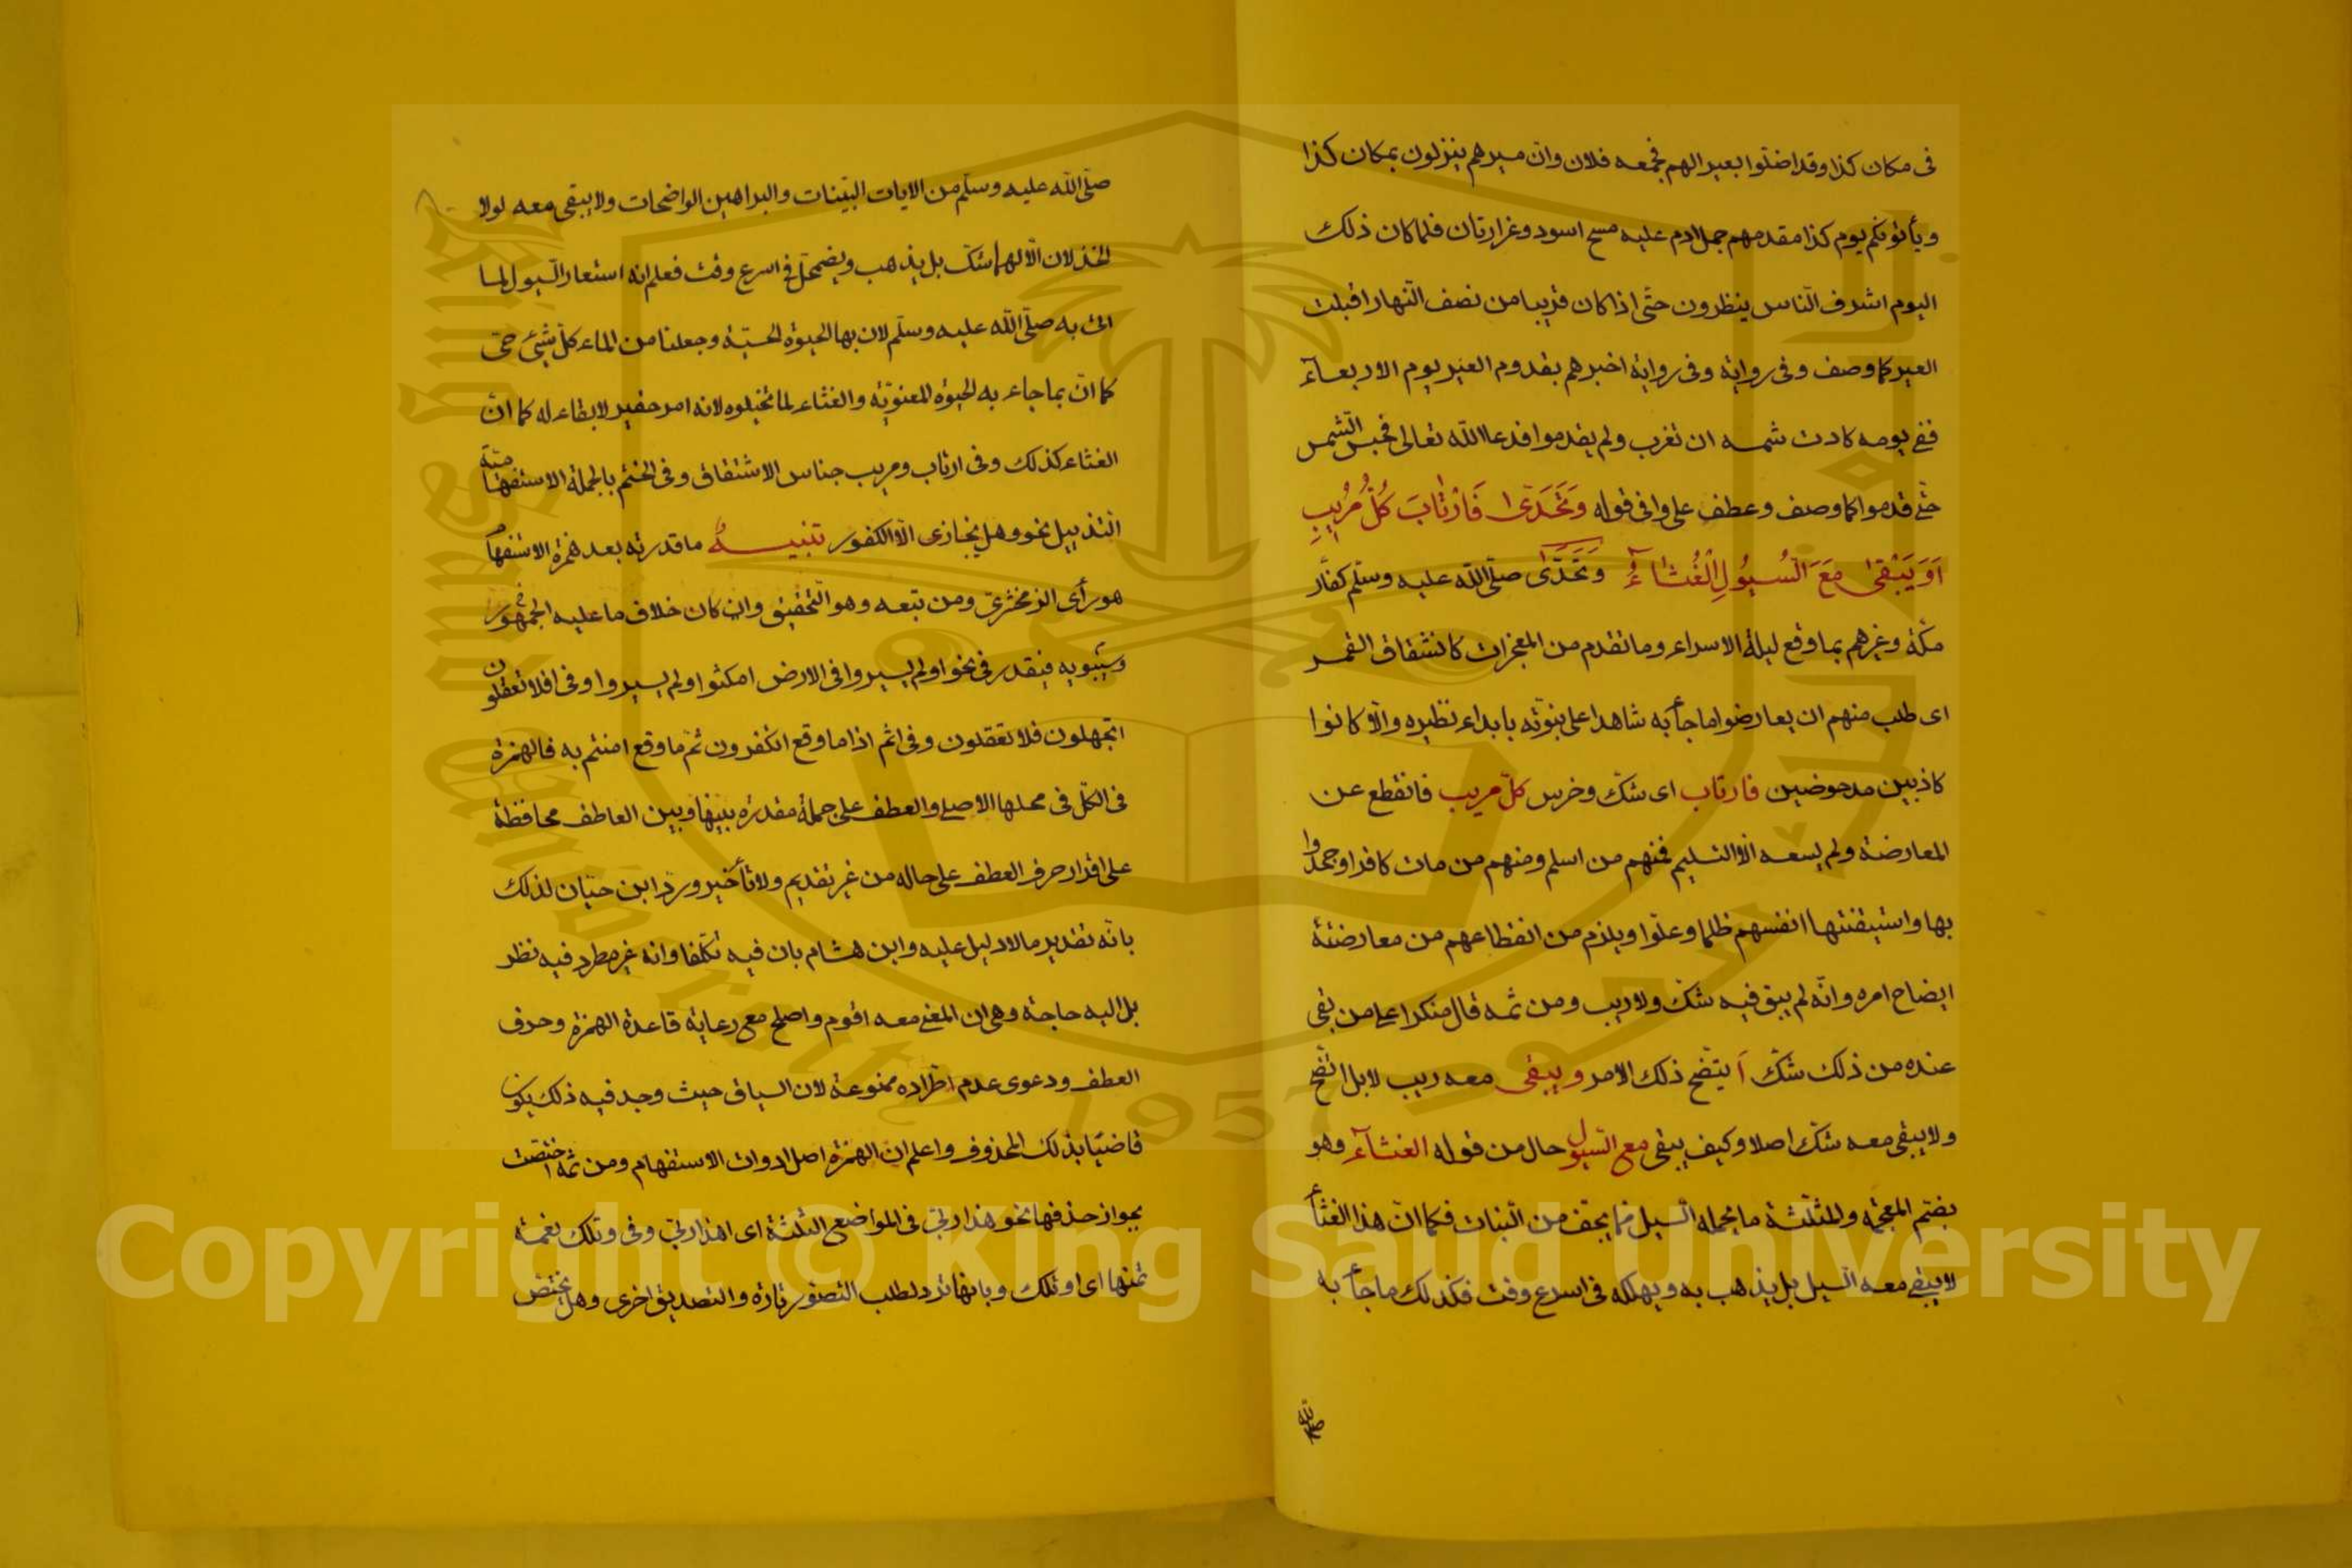 فى مكان كذا وقد اضلوا بعيرا لهم فجمعه فلان وان ميرهم ينزلون بمكان كذا
ويأتونكم يوم كذا مقدمهم جمل ادم عليه مسح اسود وغرارتان فلما كان ذلك
اليوم اشرف الناس ينظرون حتى اذا كان قريبا من نصف النهار اقبلت
العير كما وصف وفى رواية وفى رواية اخبرهم بقدوم العير يوم الاربعاء
ففى يومه كادت شمسه ان تغرب ولم يقدموا فدعا الله تعالى فحبس الشمس
حتى قدموا كما وصف وعطف على وافى قوله وَتَحَدَّى فَارْتَابَ كُلُّ مُرِيبٍ
اَوَ يَبْقَى مَعَ السُّيُولِ الْغُثَاءُ وَتَحَدَّى صلى الله عليه وسلم كفار
مكة وغيرهم بما وقع ليلة الاسراء وما تقدم من المعجزات كانشقاق القمر
اى طلب منهم ان يعارضوا ما جأ به شاهدا على نبوته بابداء نظيره والا كانوا
كاذبين مدحوضين فارتاب اى شك وخرس كل مريب فانقطع عن
المعارضة ولم يسعه الا التسليم فمنهم من اسلم ومنهم من مات كافرا وجحدوا
بها واستيقنتها انفسهم ظلما وعلوا ويلزم من انقطاعهم من معارضته
ايضاح امره وانه لم يبق فيه شك ولا ريب ومن ثمه قال منكرا على من بقى
عنده من ذلك شك اَ يتضح ذلك الامر ويبقى معه ريب لا بل اتضح
ولا يبقى معه شك اصلا وكيف يبقى مع السيول حال من قوله الغثاء وهو
بضم المعجمة والمثلثة ما يحمله السيل مما يجف من النبات فكما ان هذا الغثأ
لا يبقى معه السيل بل يذهب به ويهلكه فى اسرع وقت فكذلك ما جأ به
صلى الله
صلى الله عليه وسلم من الايات البينات والبراهين الواضحات ولا يبقى معه لولا
الخذلان الالهى شك بل يذهب ويضمحل فى اسرع وقت فعلم انه استعار السيول لما
اتى به صلى الله عليه وسلم لان بها الحيوة الحسية وجعلنا من الماء كل شيئ حى
كما ان بما جاء به الحيوة المعنوية والغثاء لما تخيلوه لانه امر حقير لا بقاء له كما ان
الغثاء كذلك وفى ارتاب ومريب جناس الاشتقاق وفى الختم بالجملة الاستفهامية
التذييل نحو وهل يجازى الا الكفور تنبيه ما قدرته بعد همزة الاستفهام
هو رأى الزمخشرى ومن تبعه وهو التحقيق وان كان خلاف ما عليه الجمهور
وسيبويه فيقدر فى نحو اولم يسيروا فى الارض امكثوا ولم يسيروا وفى افلا تعقلون
اتجهلون فلا تعقلون وفى اثم اذا ما وقع اتكفرون ثم ما وقع امنتم به فالهمزة
فى الكل فى محلها الاصلى والعطف على جملة مقدرة بينها وبين العاطف محافظة
على اقرار حرف العطف على حاله من غير تقديم ولا تأخير ورد ابن حيان لذلك
بانه تقدير ما لا دليل عليه وابن هشام بان فيه تكلفا وانه غير مطرد فيه نظر
بل اليه حاجة وهى ان المعنى معه اقوم واصلح مع رعاية قاعدة الهمزة وحرف
العطف ودعوى عدم اطراده ممنوعة لان السياق حيث وجد فيه ذلك يكون
قاضيا بذلك المحذوف واعلم ان الهمزة اصل ادوات الاستفهام ومن ثمه اختصت
بجواز حذفها نحو هذا ربى فى المواضع الثلثة اى اهذا ربى وفى وتلك نعمة
تمنها اى اوتلك وبانها ترد لطلب التصور تارة والتصديق اخرى وهل يختص
King Saud University
1957
Copyright © King Saud University